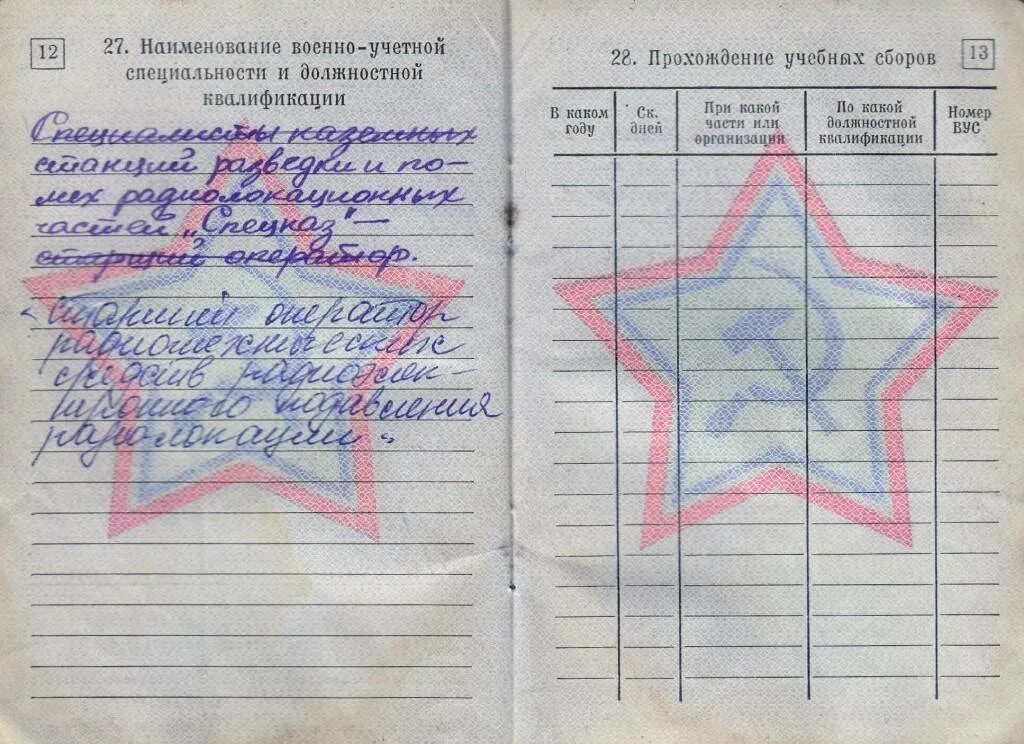 12
27. Наименование военно-учетной
специальности и должностной
квалификации
Специалисты наземных
станций разведки и по-
мех радиолокационных
частей „Спецназ"—
старший оператор.
„Старший оператор
радиотехнических
средств радиоэлек-
тронного подавления
радиолокации"
13
28. Прохождение учебных сборов
В каком году
Ск. дней
При какой части или организации
По какой должностной квалификации
Номер ВУС